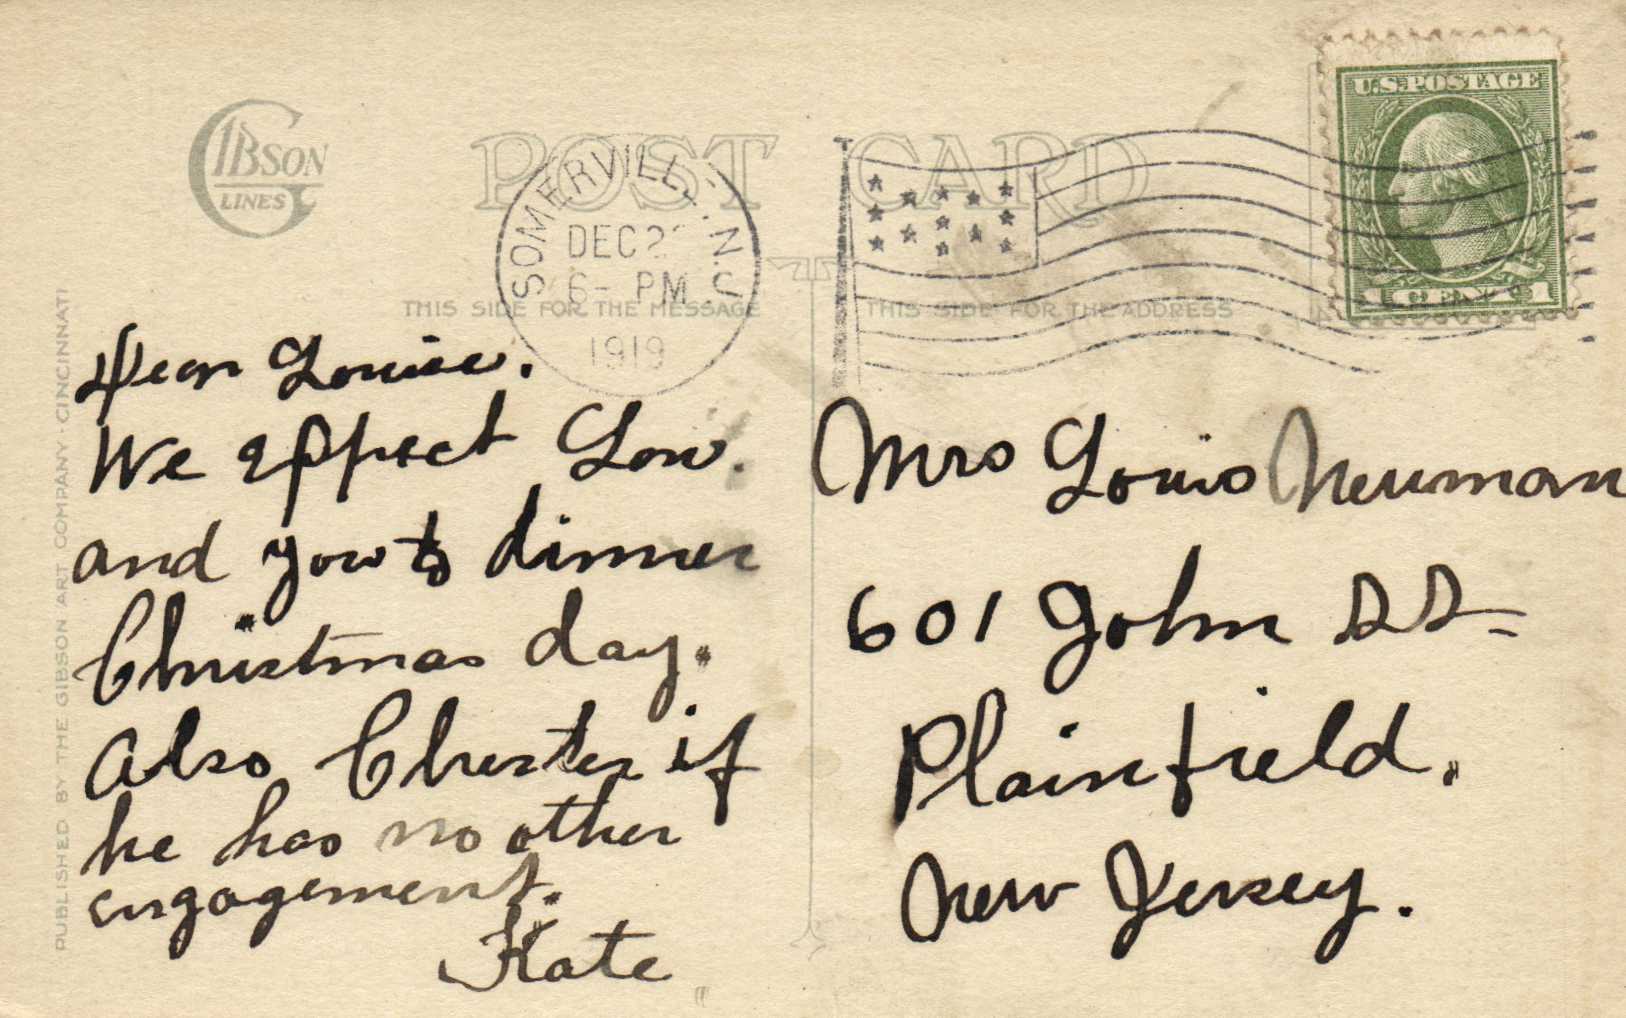 GIBSON
LINES
POST CARD
SOMERVILLE, N.J.
DEC 2
6- PM
1919
U.S. POSTAGE
1 CENT 1
THIS SIDE FOR THE MESSAGE
THIS SIDE FOR THE ADDRESS
PUBLISHED BY THE GIBSON ART COMPANY · CINCINNATI
Dear Louise.
We expect Lou.
and you to dinner
Christmas day.
Also Chester if
he has no other
engagement.
Kate
Mrs Louis Neuman
601 John St
Plainfield.
New Jersey.